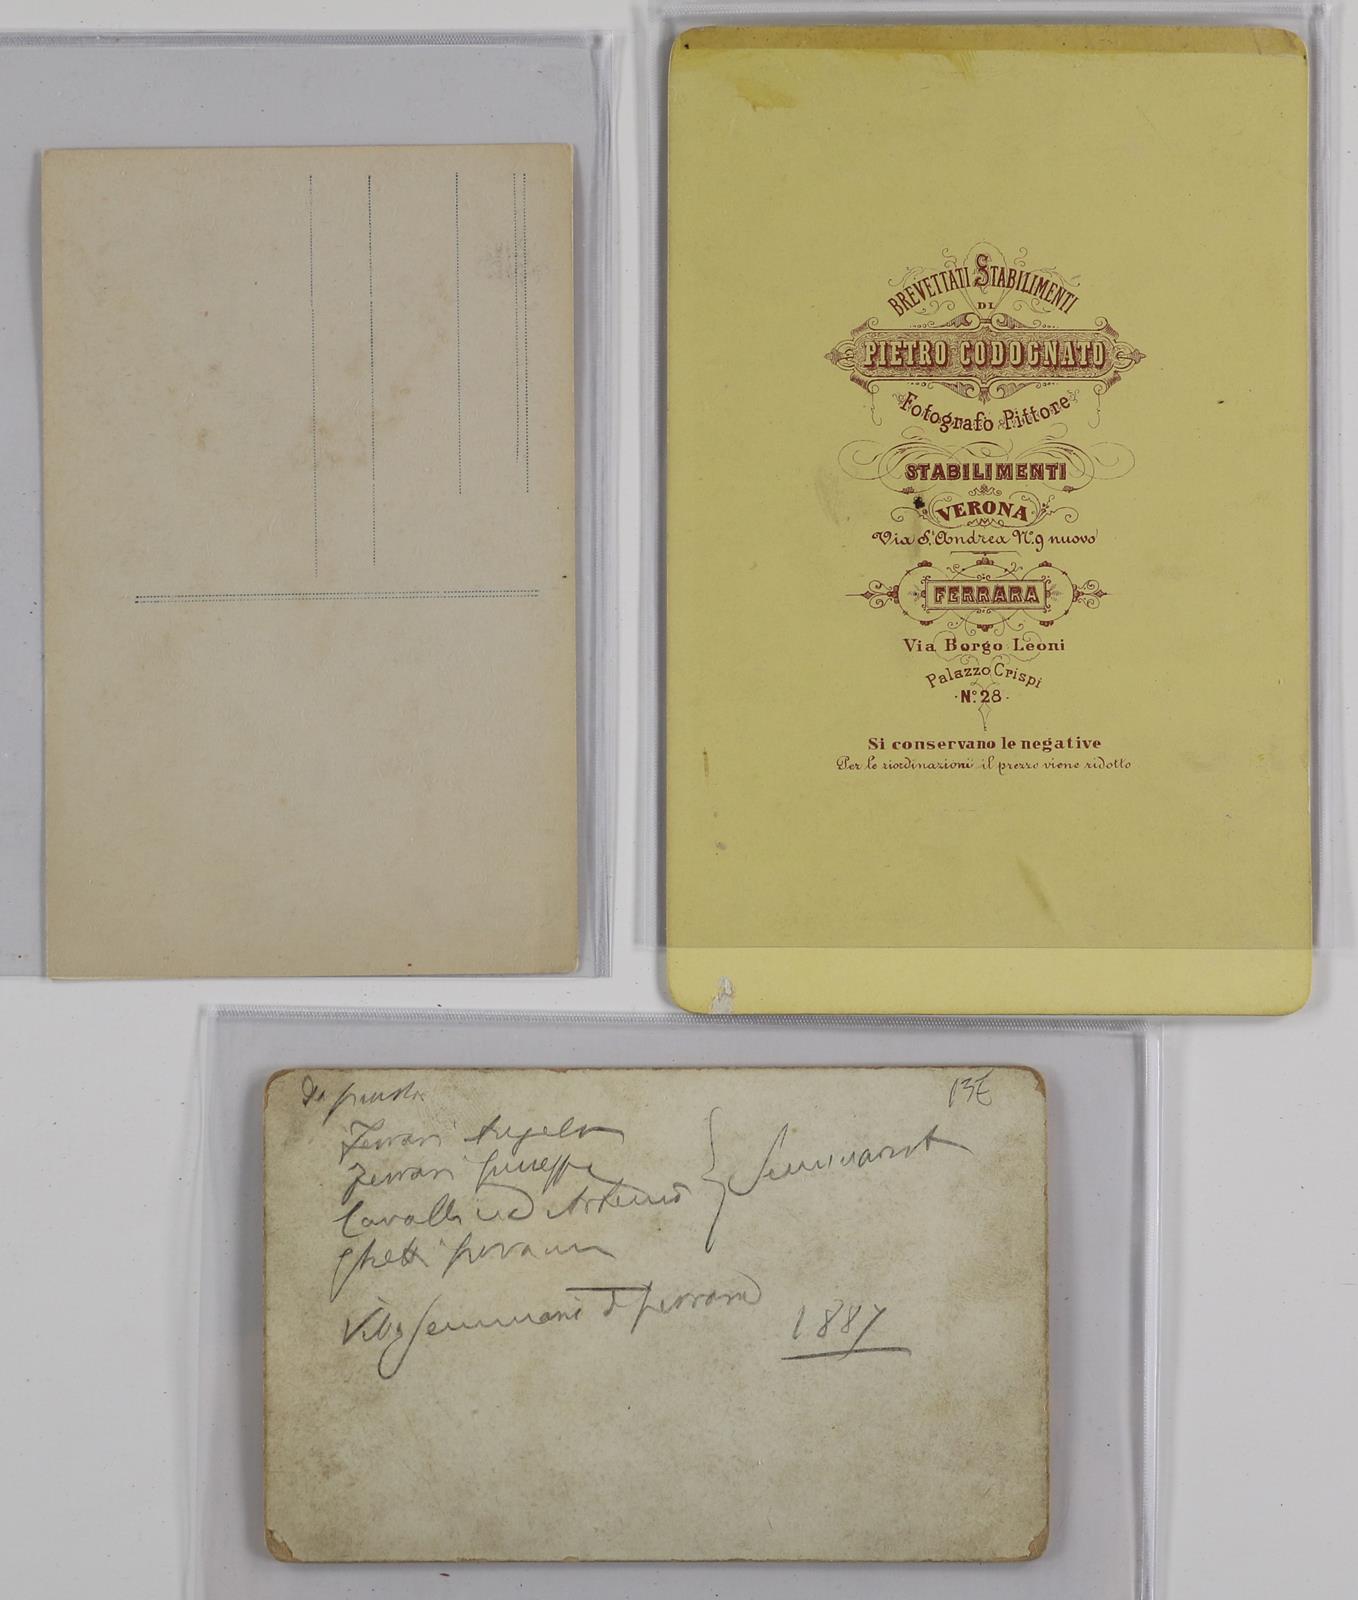 BREVETTATI STABILIMENTI
DI
PIETRO CODOGNATO
Fotografo Pittore
STABILIMENTI
VERONA
Via S. Andrea N. 9 nuovo
FERRARA
Via Borgo Leoni
Palazzo Crispi
N.º 28
Si conservano le negative
Per le riordinazioni il prezzo viene ridotto
Ferrari Angelo
Ferrari Giuseppe
Ghetti Giovanni
Ferrara
1887